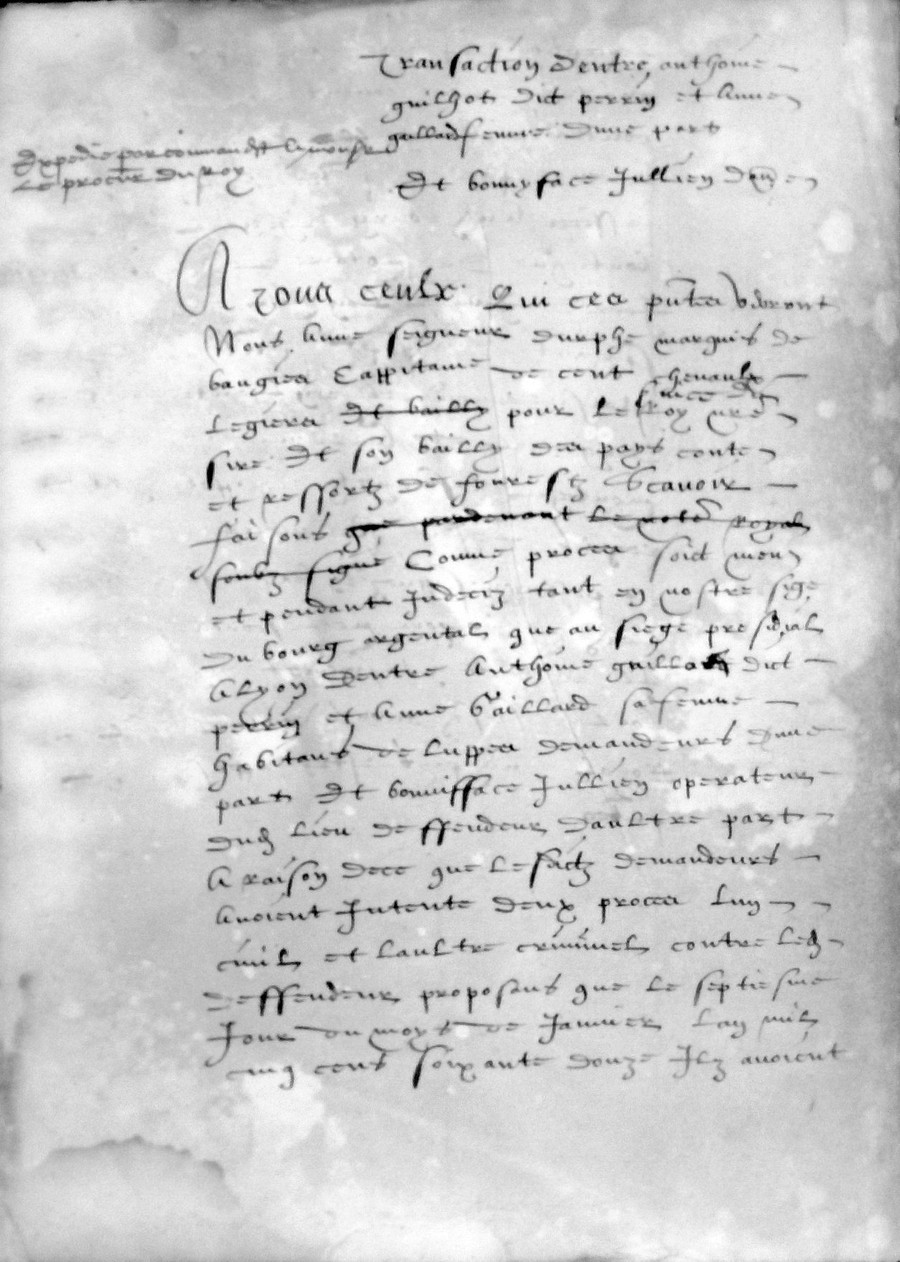 Transaction dentre anthoine
guilhot dict perrin et anne
gaillard femme dune part
Et bonnyface Jullien d'au
Expedie par commandt
Le procur du roy
A tous ceulx Qui ces pntes verront
Nous anne seigneur durphe marquis de
baugies Cappitaine de cent chevaulx
legiers et bailly pour le Roy nre
sire Et son bailly des pays conte
et ressortz de fourestz Scavoir
faisons que pardevant le notre royal
soubz signe Comme proces soict meu
et pendant Indeciz tant en nostre sige
du bourg argental que au siege presidial
a lyon Dentre Anthoine guillot dict
perrin et Anne Gaillard sa femme
habitans de luppes demandeurs dune
part Et bonnifface Jullien operateur
dud lieu deffendeur daultre part
A raison de ce que lesditz demandeurs
Avoient Intente deux proces lun
civil et laultre criminel contre led
deffendeur proposans que le septiesme
Jour du moys de Janvier lan mil
cinq cens soixante douze Ilz avoient